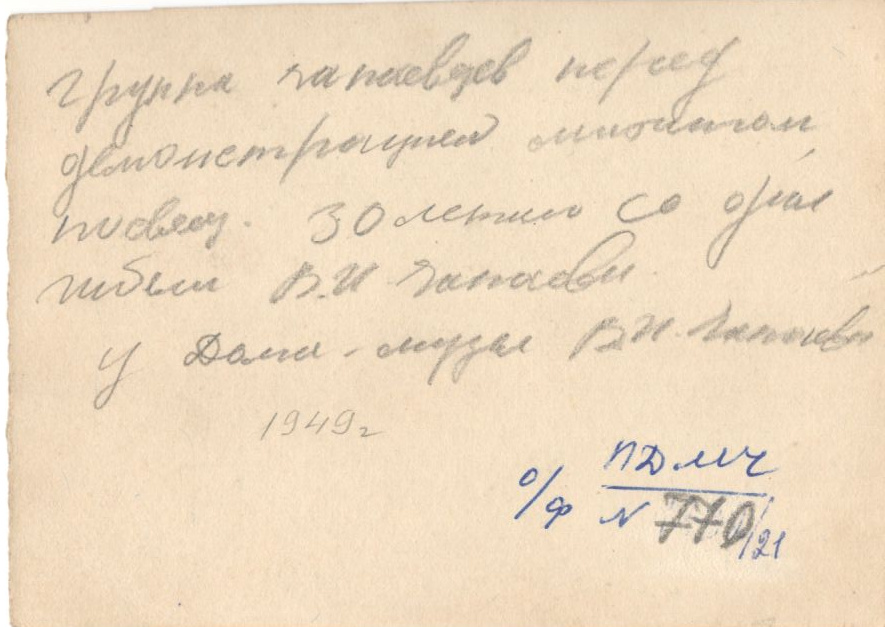 группа чапаевцев перед
демонстрацией митингом,
посвящ. 30 летию со дня
гибели В.И Чапаева.
у Дома-музея В.И. Чапаева
1949г
ПДМЧ
о/ф N 770/21